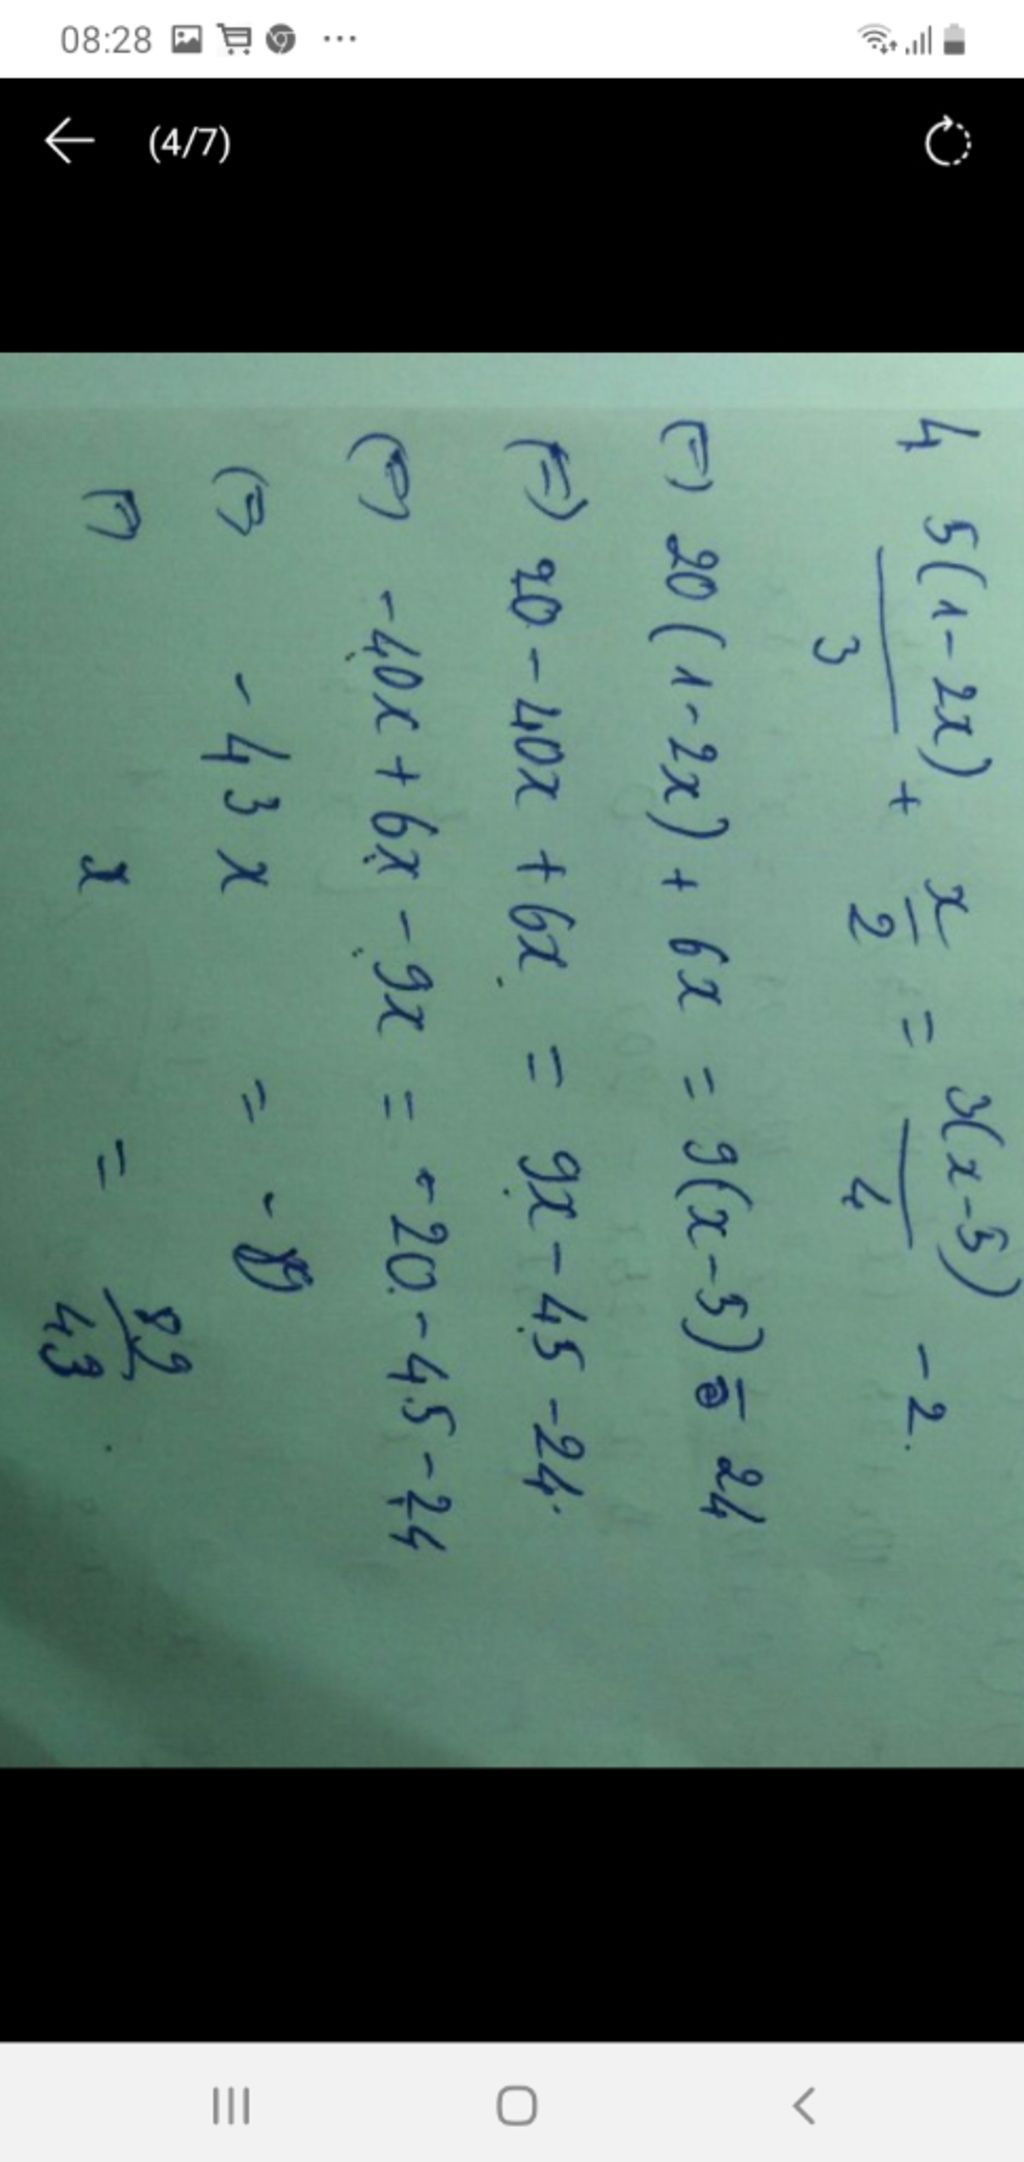 08:28
(4/7)
4 5(1-2x)/3 + x/2 = 3(x-5)/4 - 2.
(=) 20(1-2x) + 6x = 9(x-5) - 24
(=) 20 - 40x + 6x = 9x - 45 - 24.
(=) -40x + 6x - 9x = -20 - 45 - 24
(=) -43x = -
(=) x = /43